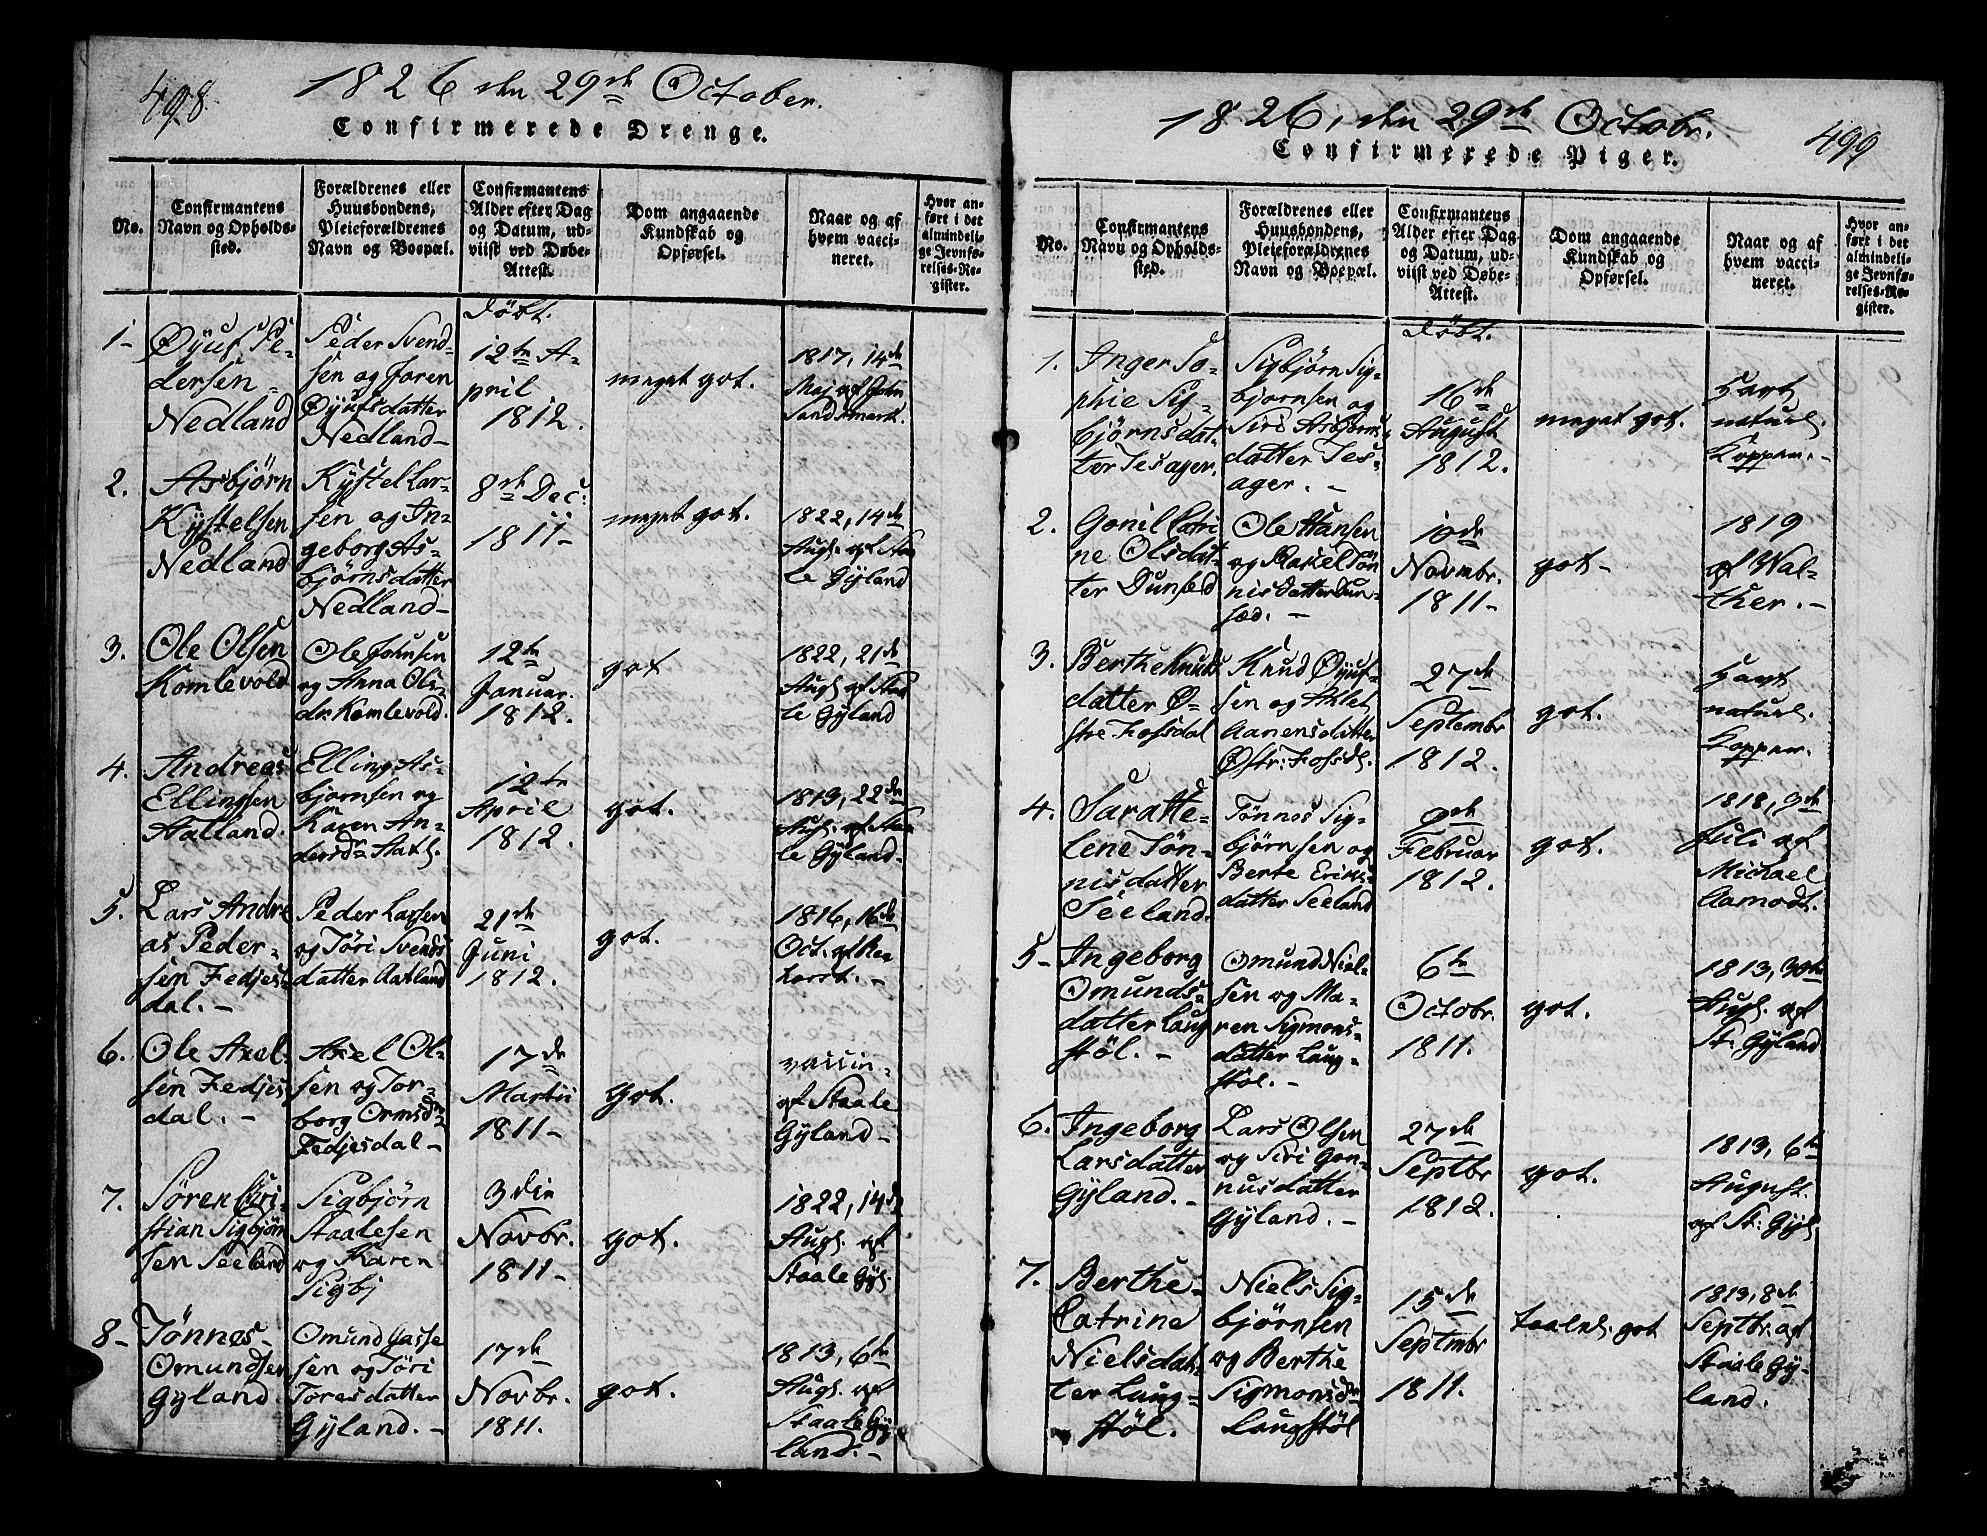 498.
1826 den 29de October.
Confirmerede Drenge.
No.
Confirmantens
Navn og Opholds-
sted.
Forældrenes eller
Huusbondens,
Pleieforældrenes
Navn og Boepæl.
Confirmantens
Alder efter Dag
og Datum, ud-
viist ved Døbe-
Attest.
Dom angaaende
Kundskab og
Opførsel.
Naar og af
hvem vacci-
neret.
Hvor an-
ført i det
almindeli-
ge Jevnfø-
relses-Re-
gister.
döbt.
1-
Øyuf Pe-
dersen
Nedland
Peder Svend-
sen og Joren
Øyufsdatter
Nedland-
12te A-
pril
1812.
meget got.
1817, 14de
Maj af John
Sandsmark.
2.
Asbjørn
Kystelsen
Nedland
Kystel Lar-
sen og In-
geborg As-
bjørnsdatter
Nedland-
8de Dec:
1811-
meget got.
1822, 14de
Augl. af Staa
le Gyland
3.
Ole Olsen
Komlevold
Ole Johnsen
og Anna Ols-
dr. Komlevold.
12te
Januar.
1812.
got
1822, 21de
Augl. af Staa
le Gyland
4.
Andreas
Ellingsen
Stalland.
Elling As-
bjørnsen og
Karen An-
dersdr Stall.
12te
April
1812.
got.
1813, 22de
Augl. af Staa
le Gyland.
5.
Lars Andre
as Peder-
sen Fedjes-
dal. -
Peder Larsen
og Töri Svends
datter Aatland
21de
Juni
1812.
got.
1816, 16de
Oct. af
6.
Ole Axel-
sen Fedjes
dal. -
Axel Ol-
sen og Tor-
borg Ormsdr
Fedjesdal-
17de
Martii
1811-
got.
vaccin-
af Staale
Gyland-
7.
Søren Cri-
stian Sigbjørn
sen Seeland
Sigbjørn
Staalesen
og Karen
Sigbj
3die
Novbr.
1811-
got.
1822, 14de
Augl. af
Staale Gyl.
8-
Tönnes
Omundsen
Gyland.
Omund Jasse
sen og Töri
Toresdatter
Gyland. -
17de
Novbr.
1811.
got.
1813, 6te
Augl. af
Staale Gy
land. -
1826, den 29de Octobr.
499
Confirmerede Piger.
No.
Confirmantens
Navn og Opholds-
sted.
Forældrenes eller
Huusbondens,
Pleieforældrenes
Navn og Boepæl.
Confirmantens
Alder efter Dag
og Datum, ud-
viist ved Døbe-
Attest.
Dom angaaende
Kundskab og
Opførsel.
Naar og af
hvem vacci-
neret.
Hvor an-
ført i det
almindeli-
ge Jevnfø-
relses-Re-
gister.
döbt.
1.
Inger So-
phie Sig-
bjørnsdat-
ter Jesager.
Sigbjørn Sig-
bjørnsen og
Siri Asbjørns
datter Jes-
ager. -
16de
August
1812.
meget got.
havt
naturl.
Kopper. -
2.
Gonil Catri
ne Olsdat-
ter Dunsæd
Ole Hansen
og Rakel Tön
nis datter Dun-
sæd. -
10de
Novmbr.
1811-
got-
1819
af Wal-
ther. -
3.
Berthe Knuds
datter Ø-
stre Fossdal
Knud Øyuf-
sen og Atlet
Aanensdatter
Østr: Fossdl.
27de
Septembr
1812.
got.
havt
naturl.
Kopper.
4.
Saratte-
lene Tön-
nisdatter
Seeland.
Tönnes Sig-
bjørnsen og
Berte Eriks-
datter Seeland
9de
Februar
1812.
got.
1818, 3de
Juli af
Michael
Aamodt.
5-
Ingeborg
Omunds-
datter Laug
stöl. -
Omund Niel-
sen og Ma-
ren Sigmons-
datter Laug-
stöl. -
6te
Octobr.
1811.
got.
1813, 30te
Augl. af
St: Gyland
6.
Ingeborg
Larsdatter
Gyland. -
Lars Olsen
og Siri Gon-
nusdatter
Gyland. -
27de
Septbr
1812.
got.
1813, 6te
August.
af St: Gyl.
7.
Berthe-
Catrine
Nielsdat-
ter Laug-
stöl.
Niels Sig-
bjørnsen
og Berthe
Sigmonsdr
Laugstöl
15de
Septmbr
1811.
taalel. got
1813, 8de
Septbr. af
Staale Gy-
land.